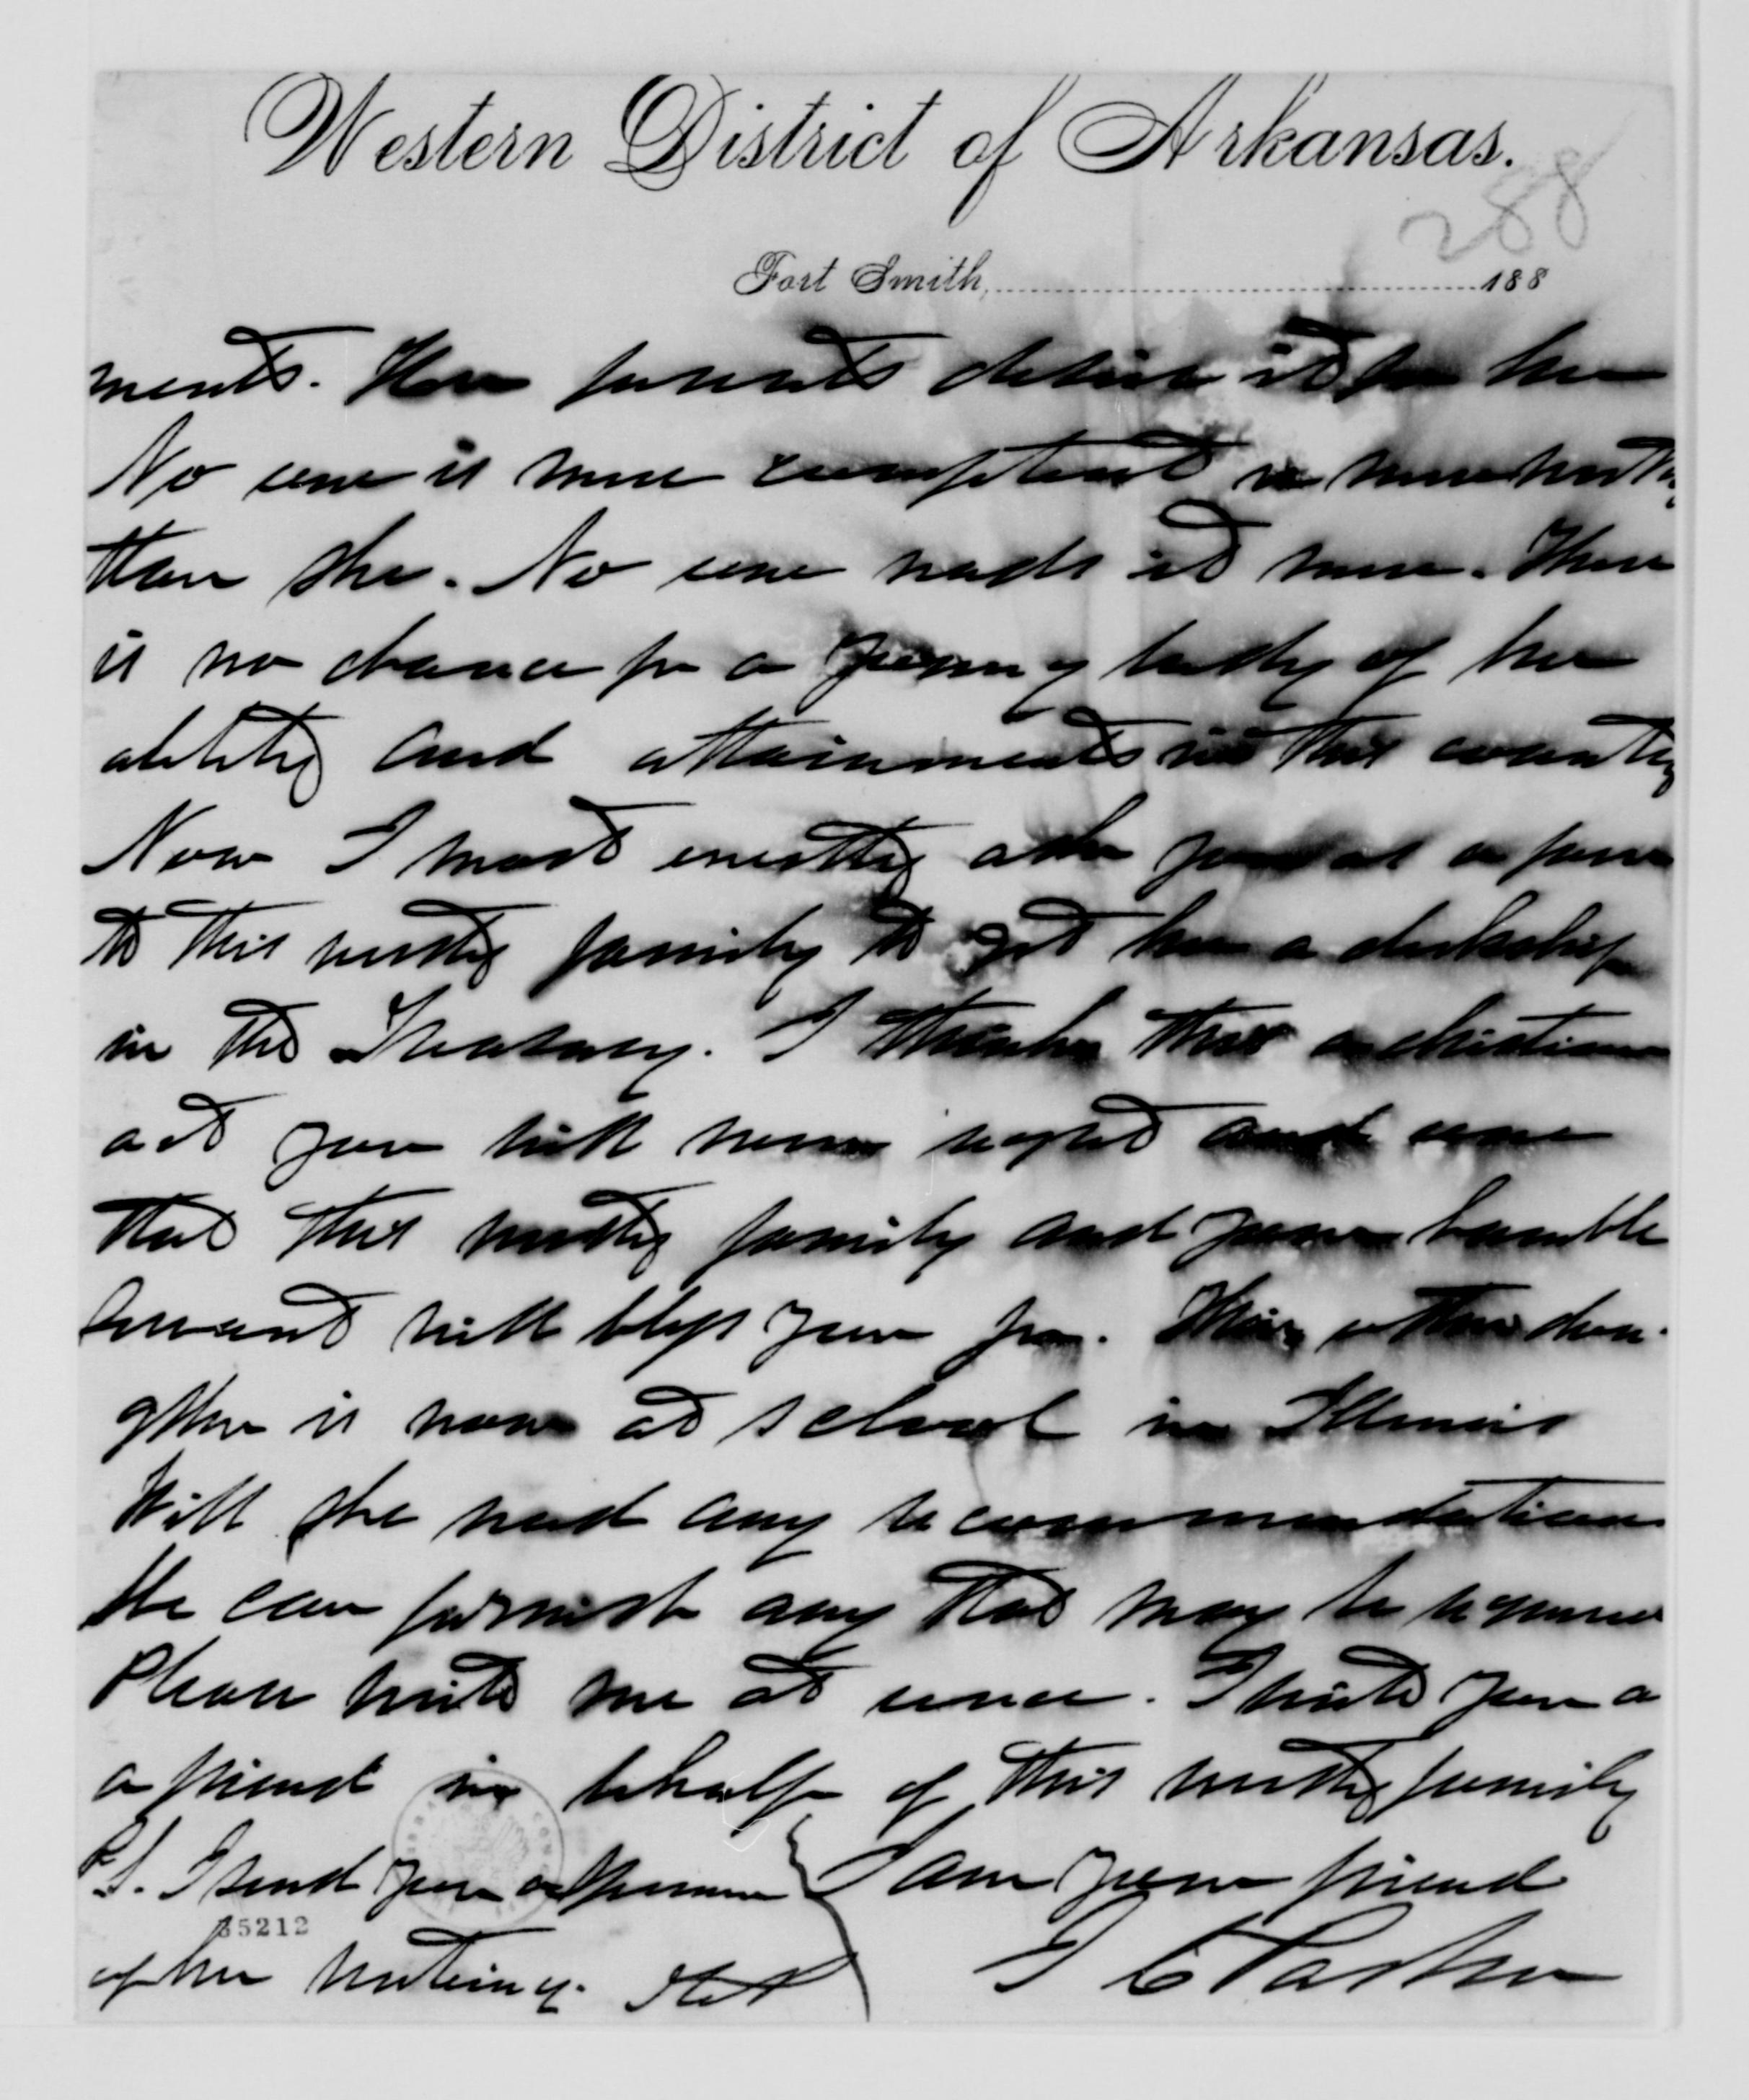 Western District of Arkansas.
288
Fort Smith, 188
ments. Her parents desire it for her
No one is more competent or more worthy
than she. No one needs it more. There
is no chance for a young lady of her
ability and attainments in this country
Now I most earnestly ask you as a favor
to this worthy family to get her a clerkship
in the Treasury. I think this a christian
act you will never regret and one
that this worthy family and your humble
Servant will bless you for. Their other dau-
ghter is now at school in Illinois
Will she need any recommendations
She can furnish any that may be required
Please write me at once. I write you a
a friend in behalf of this worthy family
P.S. I send you a specimen I am your friend
35212
of her writing. I C Parker